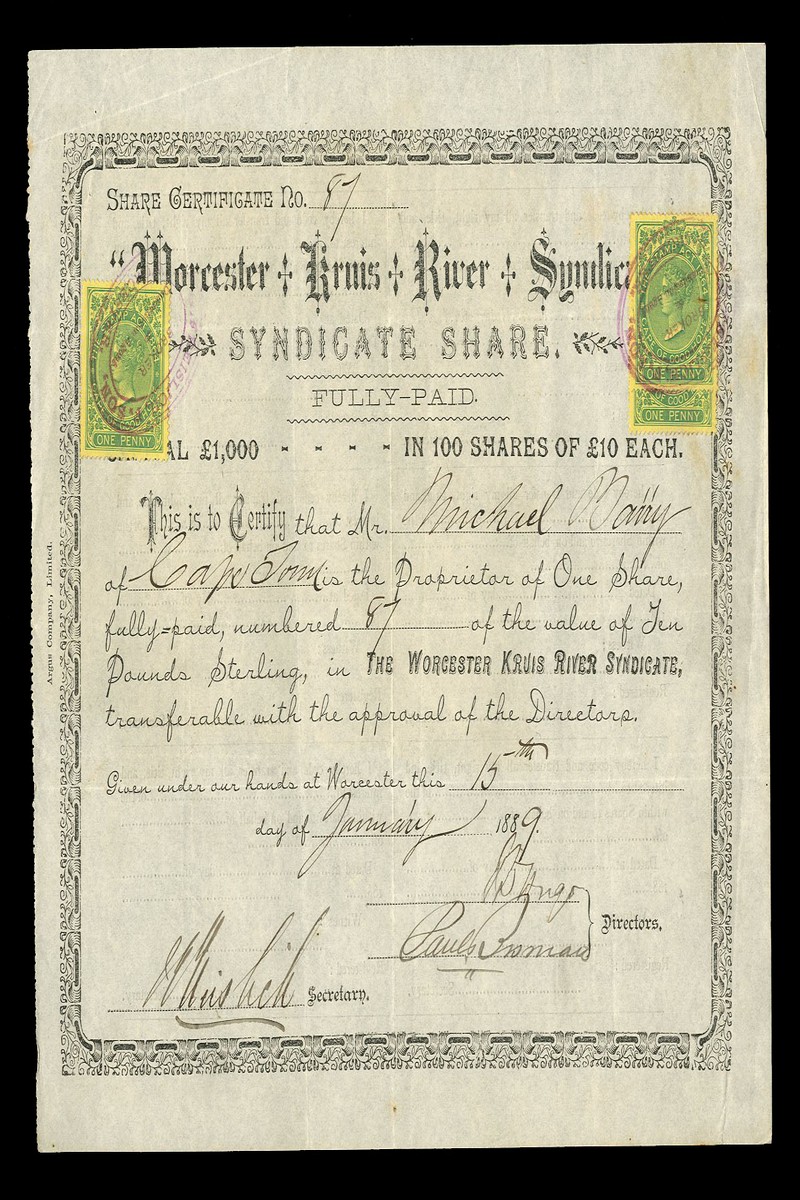 SHARE CERTIFICATE No. 87
"Worcester + Kruis + River + Syndica
SYNDICATE SHARE.
FULLY-PAID.
AL £1,000 - - - - IN 100 SHARES OF £10 EACH.
This is to Certify that Mr. Michael Barry
of Cape Town is the Proprietor of One Share,
fully=paid, numbered 87 of the value of Ten
Pounds Sterling, in THE WORCESTER KRUIS RIVER SYNDICATE,
transferable with the approval of the Directors.
Given under our hands at Worcester this 15th
day of January 1889.
Directors,
Secretary.
Argus Company, Limited.
ONE PENNY
ONE PENNY
OF GOOD
ONE PENNY